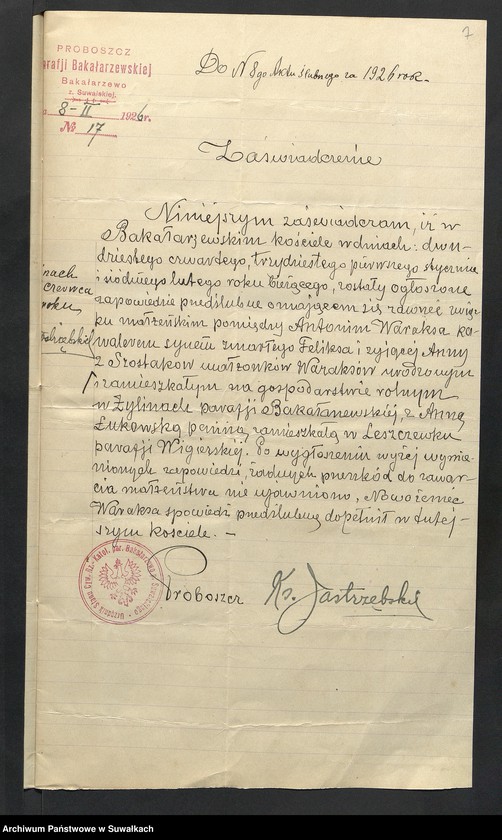 7
PROBOSZCZ
arafji Bakałarzewskiej
Bakałarzewo
z. Suwalskiej.
8-II 1926r.
№ 17
Do N 8go Aktu ślubnego za 1926 rok.
Zaświadczenie
Niniejszym zaświadczam, iż w
Bakałarzewskim kościele w dniach: dwu-
dziestego czwartego, trzydziestego pierwszego stycznia
i siódmego lutego roku bieżącego, zostały ogłoszone
zapowiedzie przedślubne o mającem się zawrzeć związ-
ku małżeńskim pomiędzy Antonim Waraksa ka-
walerem synem zmarłego Feliksa i żyjącej Anny
z Szostaków małżonków Waraksów urodzonym
i zamieszkałym na gospodarstwie rolnym
w Żylinach parafji Bakałarzewskiej, z Anną
Łukowską panną, zamieszkałą w Leszczewku
parafji Wigierskiej. Po wygłoszeniu wyżej wymie-
nionych zapowiedzi, żadnych przeszkód do zawar-
cia małżeństwa nie ujawniono. Nowożeniec
Waraksa spowiedź przedślubną dopełnił w tutej-
szym kościele. —
nach
czerwca
roku
Jastrzębskij
Proboszcz Ks. Jastrzębski
Urzędnik Stanu Cyw. Rz.-Katol. par. Bakałarzew.
Archiwum Państwowe w Suwałkach